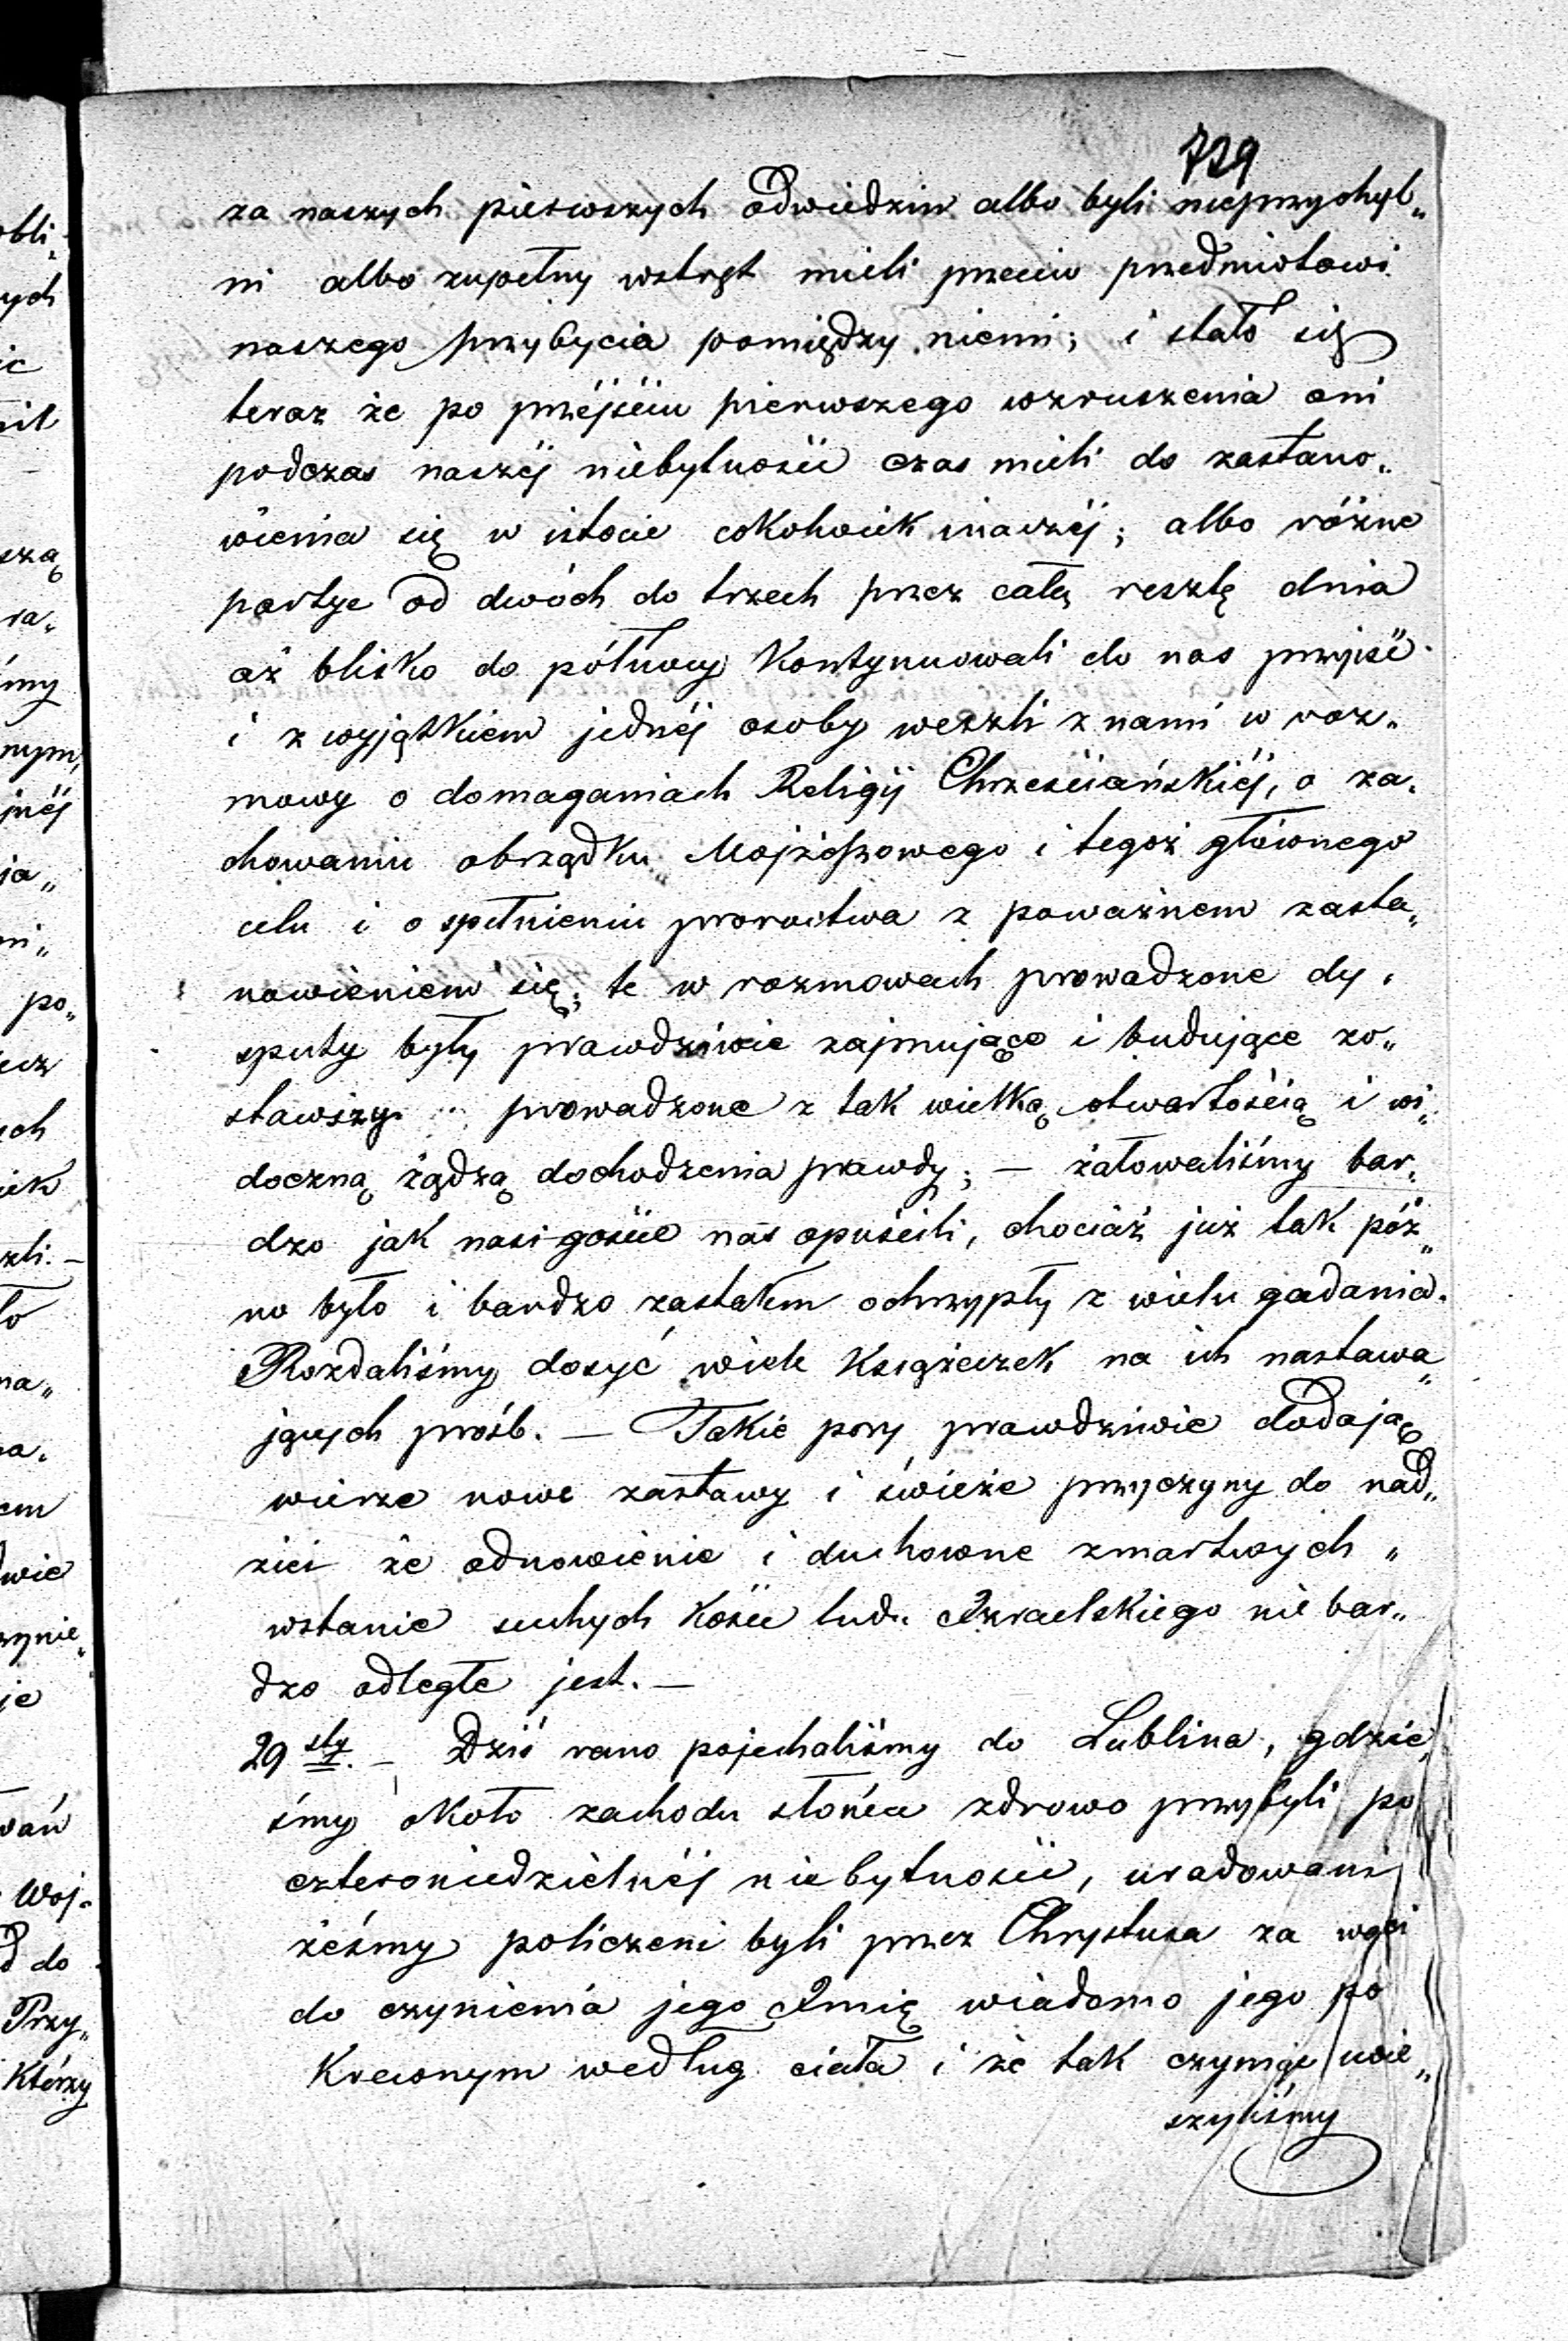 729
za naszych pierwszych odwiedzin albo byli nieprzychyl„
ni albo zupełny wstręt mieli przeciw przedmiotowi
naszego przybycia pomiędzy niemi; i stało się
teraz że po przéjściu pierwszego wzruszenia oni
podczas naszéj niebytności czas mieli do zastano„
wienia się w istocie cokolwiek inaczéj; albo różne
partye od dwóch do trzech przez całą resztę dnia
aż blisko do północy kontynuowali do nas przyjść
i z wyjątkiem jednéj osoby weszli z nami w roz„
mowy o domaganiach Religij Chrześciańskiéj, o za„
chowaniu obrządku Mojżeszowego i tegoż głównego
celu i o spełnieniu proroctwa z poważnem zasta„
nowieniem się; te w rozmowach prowadzone dy„
sputy były prawdziwie zajmujące i budujące zo„
stawszy prowadzone z tak wielką otwartością i wi„
doczną żądzą dochodzenia prawdy; — żałowaliśmy bar„
dzo jak nasi goście nas opuścili, chociaż już tak póź„
no było i bardzo zostałem ochrzypły z wielu gadania.
Rozdaliśmy dosyć wiele Książeczek na ich nastawa„
jących próśb. — Takie pory prawdziwie dodają
wierze nowe zastawy i świeże przyczyny do nad„
ziei że odnowienie i duchowne zmartwych„
wstanie suchych kości ludu Izraelskiego nie bar„
dzo odległe jest. —
29 sty. — Dziś rano pojechaliśmy do Lublina, gdzie
śmy około zachodu słońca zdrowo przybyli po
czteroniedzielnéj niebytności, uradowani
żeśmy policzeni byli przez Chrystusa za
do czynienia jego Imię wiadomo jego po
krewnym według ciała i że tak czyniąc ucie„
szyliśmy